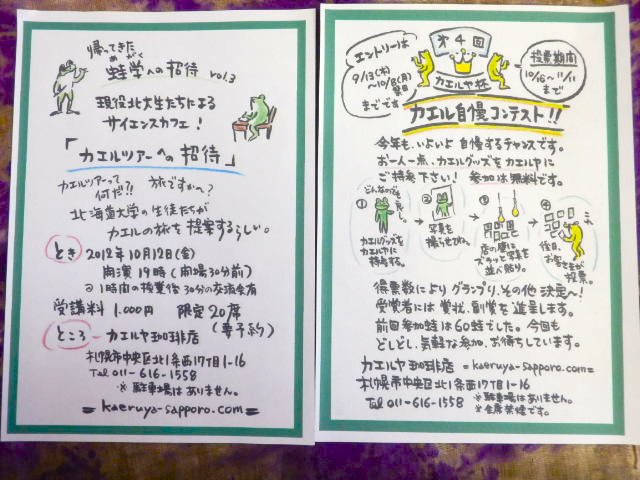 帰ってきた
めがく
蛙学への招待 vol.3
現役北大生たちによる
サイエンスカフェ!
「カエルツアーへの招待」
カエルツアーって
何だ!! 旅ですか〜?
北海道大学の生徒たちが
カエルの旅を提案するらしい。
とき 2012年10月12日(金)
開演19時(開場30分前)
1時間の授業後30分の交流会有
受講料 1.000円 限定20席
(要予約)
ところ カエルヤ珈琲店
札幌市中央区北1条西17丁目1-16
Tel 011-616-1558
※駐車場はありません。
=kaeruya-sapporo.com=
エントリーは
9/13(木)
〜10/8(月)
祭日
までです
第4回
カエルヤ杯
投票期間
10/16〜11/11
まで
カエル自慢コンテスト!!
今年も、いよいよ自慢するチャンスです。
お一人一点、カエルグッズをカエルヤに
ご持参下さい! 参加は無料です。
どんなのでも良し。
① カエルグッズを
カエルヤに
持参する。
② 写真を
撮らせてね。
③ 店の壁に
ズラッと写真を
並べ貼り。
④ 後日、
お客さまが
投票。
得票数によりグランプリ、その他決定〜!
受賞者には賞状、副賞を進呈します。
前回参加蛙は60蛙でした。今回も
どしどし、気軽な参加、お待ちしています。
カエルヤ珈琲店 =kaeruya-sapporo.com=
札幌市中央区北1条西17丁目1-16
Tel 011-616-1558
※駐車場はありません。
※全席禁煙です。